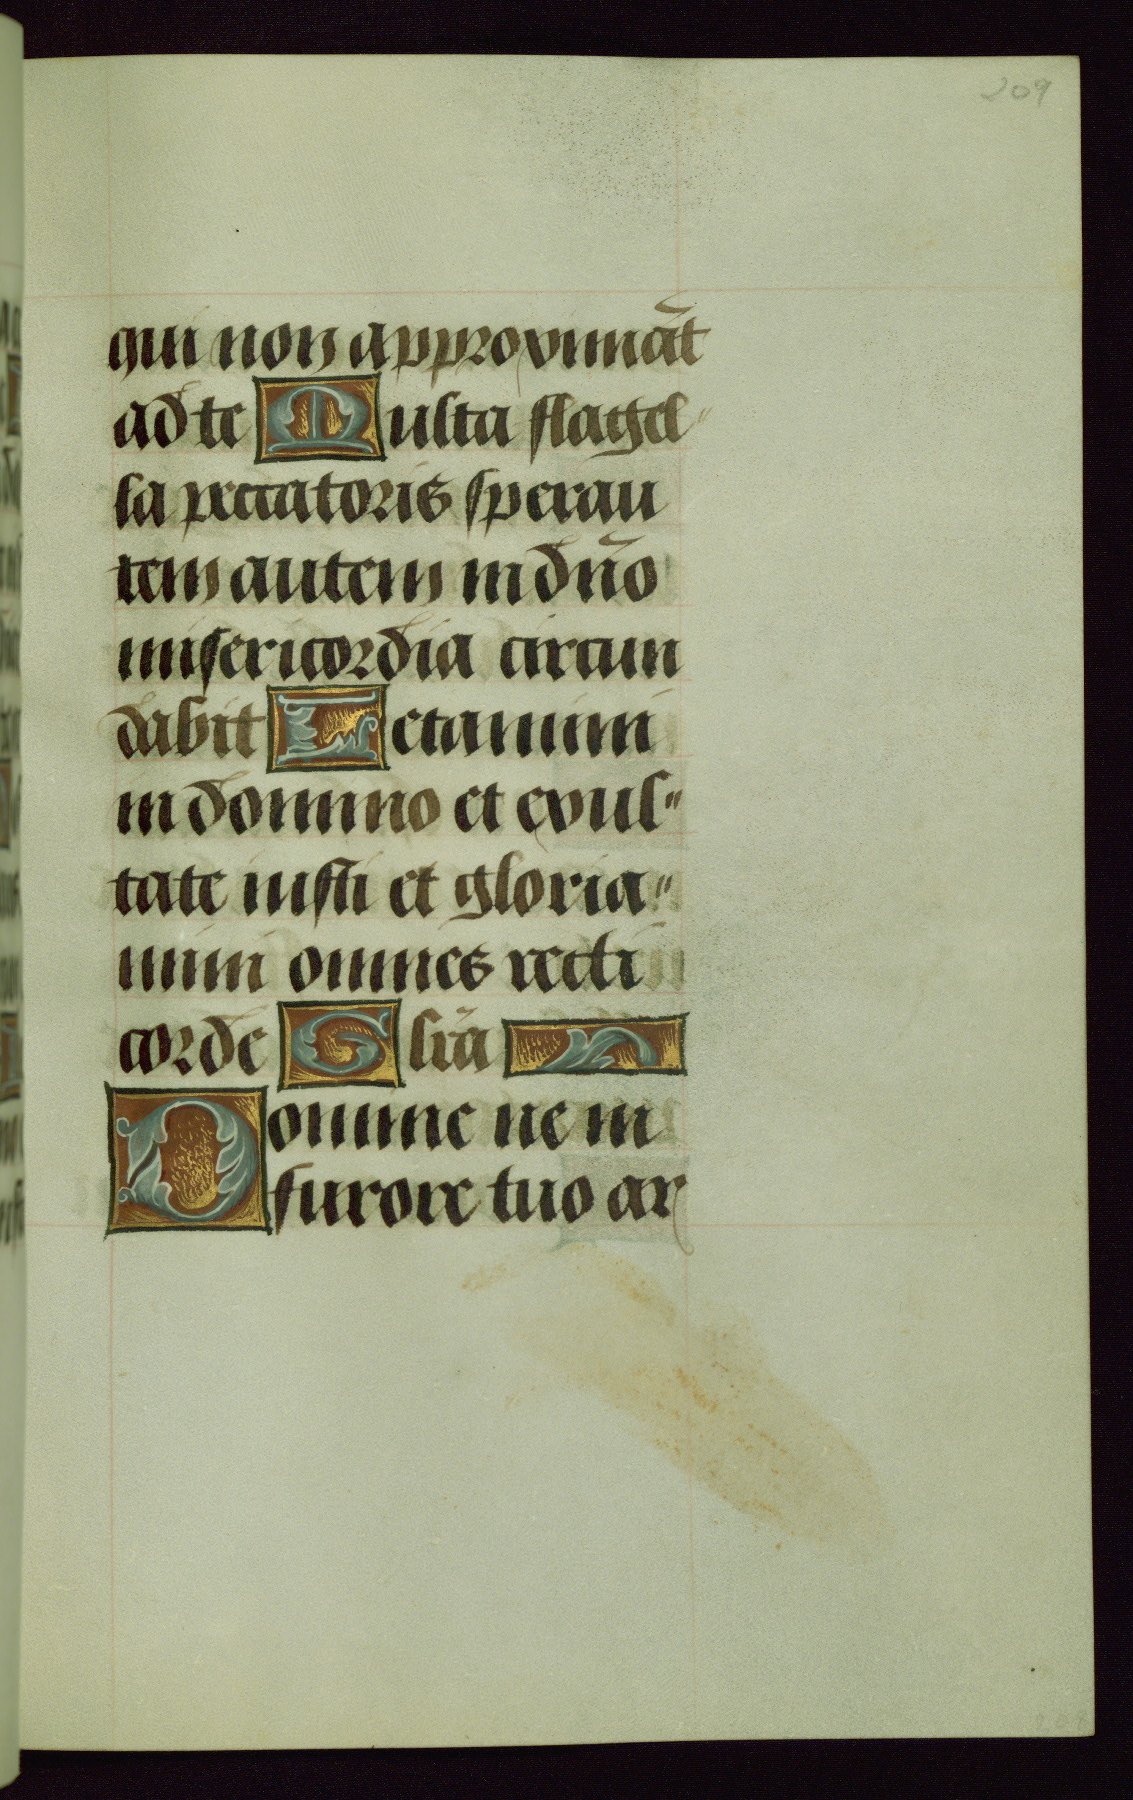 209
qui non approximāt
ad te Multa flagel
la peccatoris speran
tem autem in dño
misericordia circun
dabit Letamini
in domino et exul"
tate iusti et gloria"
mini omnes recti
corde Glīa
Domine ne in
furore tuo ar